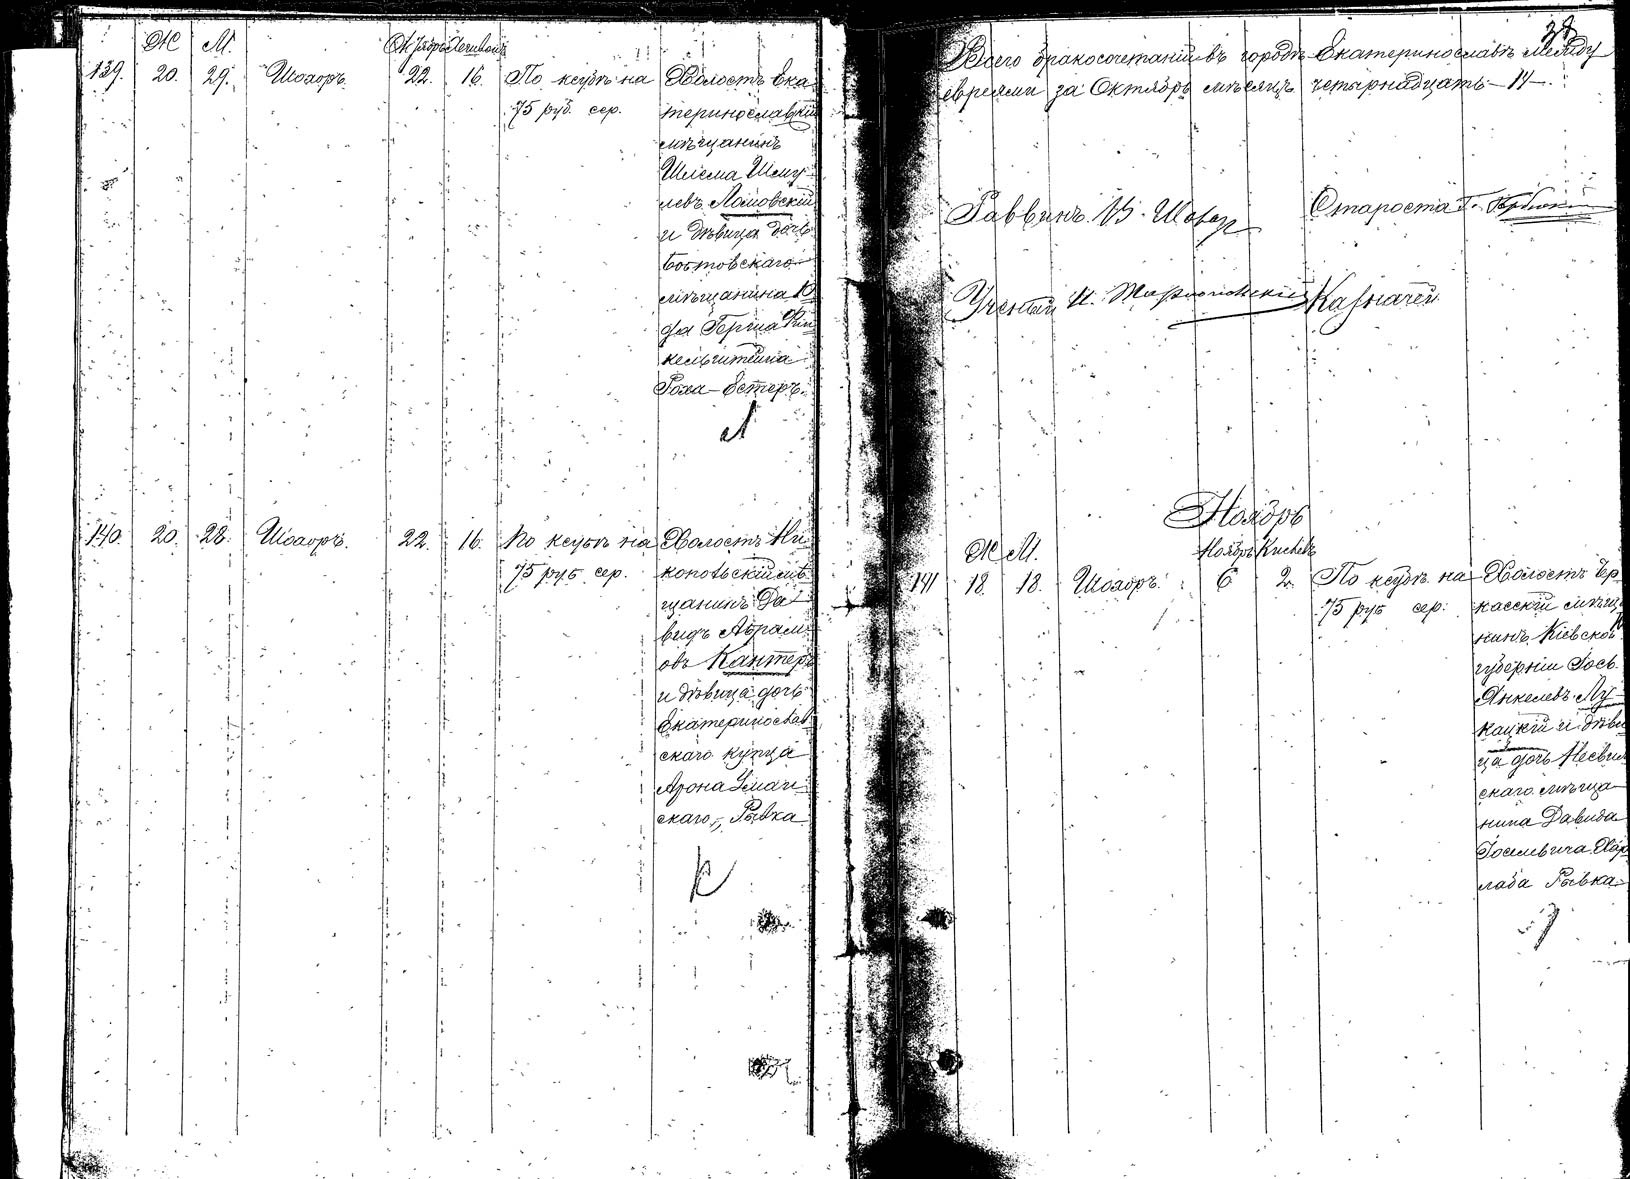 Ж М. Октябрь
139. 20. 29. Шохоръ. 22. 16. По ксубѣ на
75 руб. сер.
Холостъ Ека-
теринославскій
мѣщанинъ
Шлема Шму-
левъ
и дѣвица дочь
мѣщанина
Роха-Естеръ.
Л
140. 20. 28. Шохоръ. 22. 16. По ксубѣ на
75 руб. сер.
Холостъ Ни-
копольскій мѣ-
щанинъ Да-
видъ Абрам-
овъ Канторъ
и дѣвица дочь
Екатеринослав-
скаго купца
Арона Уман-
скаго, Рывка
К
Всего бракосочетаній въ городѣ Екатеринославѣ между
евреями за Октябрь мѣсяцъ четырнадцать – 14 –
Раввинъ В. Шавер Староста
Ученый И. Казначей
Ноябрь
Ж М. Ноябрь Кислевъ
141 18. 18. Шохоръ. 6 2. По ксубѣ на
75 руб сер.
Холостъ Чер-
касскій мѣща-
нинъ Кіевской
губерніи Іось
Янкелевъ Лу-
кацкій и дѣви-
ца дочь Несвиж
скаго мѣща-
нина Давида
Рывка